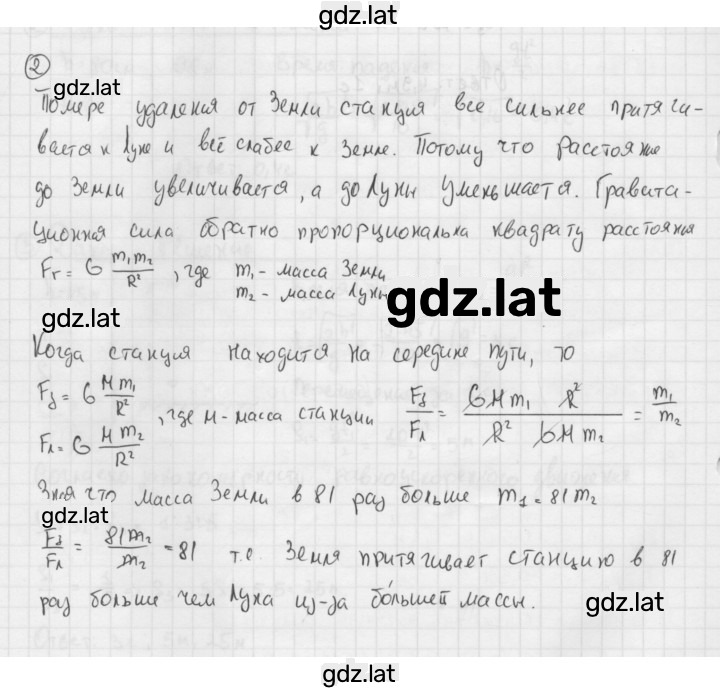 gdz.lat
2
gdz.lat
По мере удаления от Земли станция все сильнее притяги-
вается к Луне и всё слабее к Земле. Потому что расстояние
до Земли увеличивается, а до Луны уменьшается. Гравита-
ционная сила обратно пропорциональна квадрату расстояния
Fг = G m₁m₂/R², где m₁ - масса Земли
m₂ - масса Луны
gdz.lat
gdz.lat
Когда станция находится на середине пути, то
Fз = G M m₁/R²
Fл = G M m₂/R², где M - масса станции Fз/Fл = G M m₁ R²/R² G M m₂ = m₁/m₂
Зная что масса Земли в 81 раз больше m₁ = 81 m₂
gdz.lat
Fз/Fл = 81m₂/m₂ = 81 т.е. Земля притягивает станцию в 81
раз больше чем Луна из-за бо́льшей массы.
gdz.lat
gdz.lat